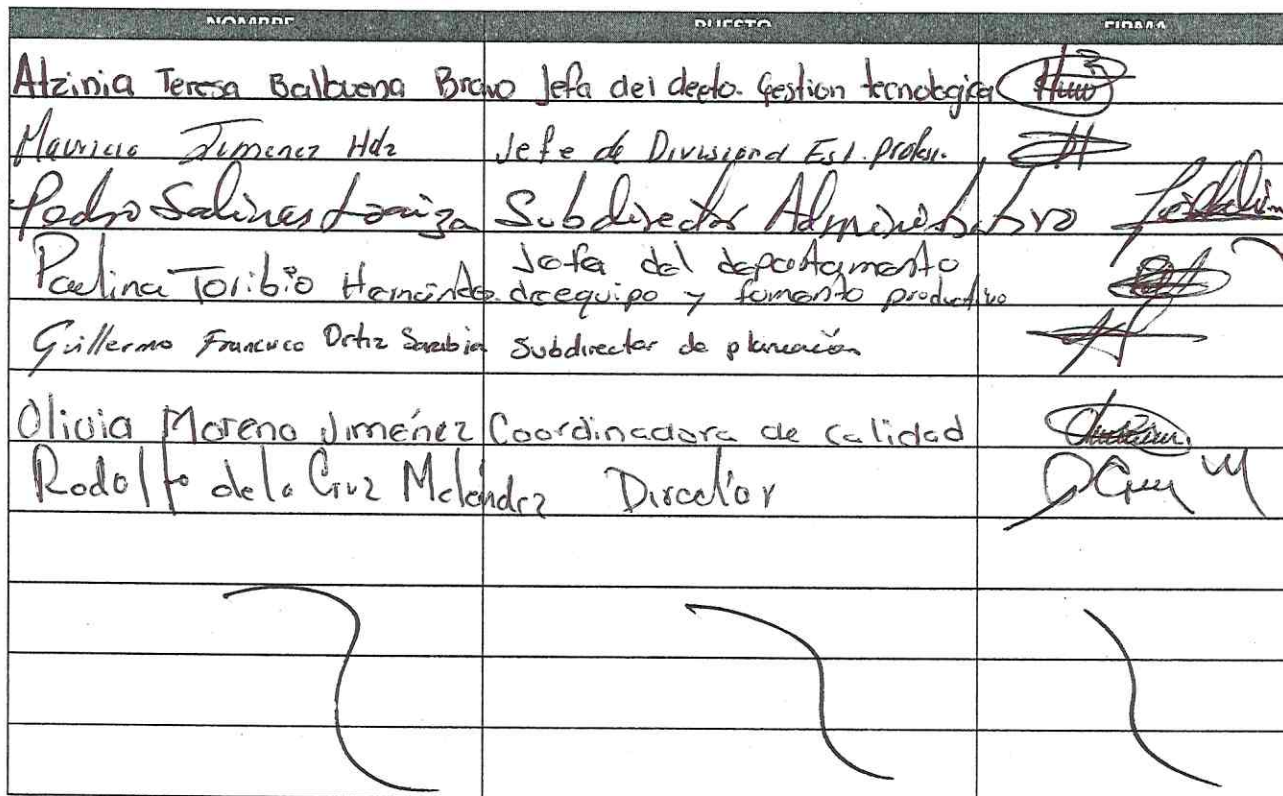 NOMBRE PUESTO FIRMA
Atzinia Teresa Balbuena Bravo Jefa del depto. Gestion tecnologica
Mauricio Jimenez Hdz Jefe de Division d Est. profesi.
Pedro Salinas Loaiza Subdirector Administrativo
Jefa del departamento
Paulina Toribio Hernández de equipo y fomento productivo
Guillermo Francisco Ortiz Sarabia Subdirector de planeación
Olivia Moreno Jiménez Coordinadora de calidad
Rodolfo de la Cruz Melendez Director